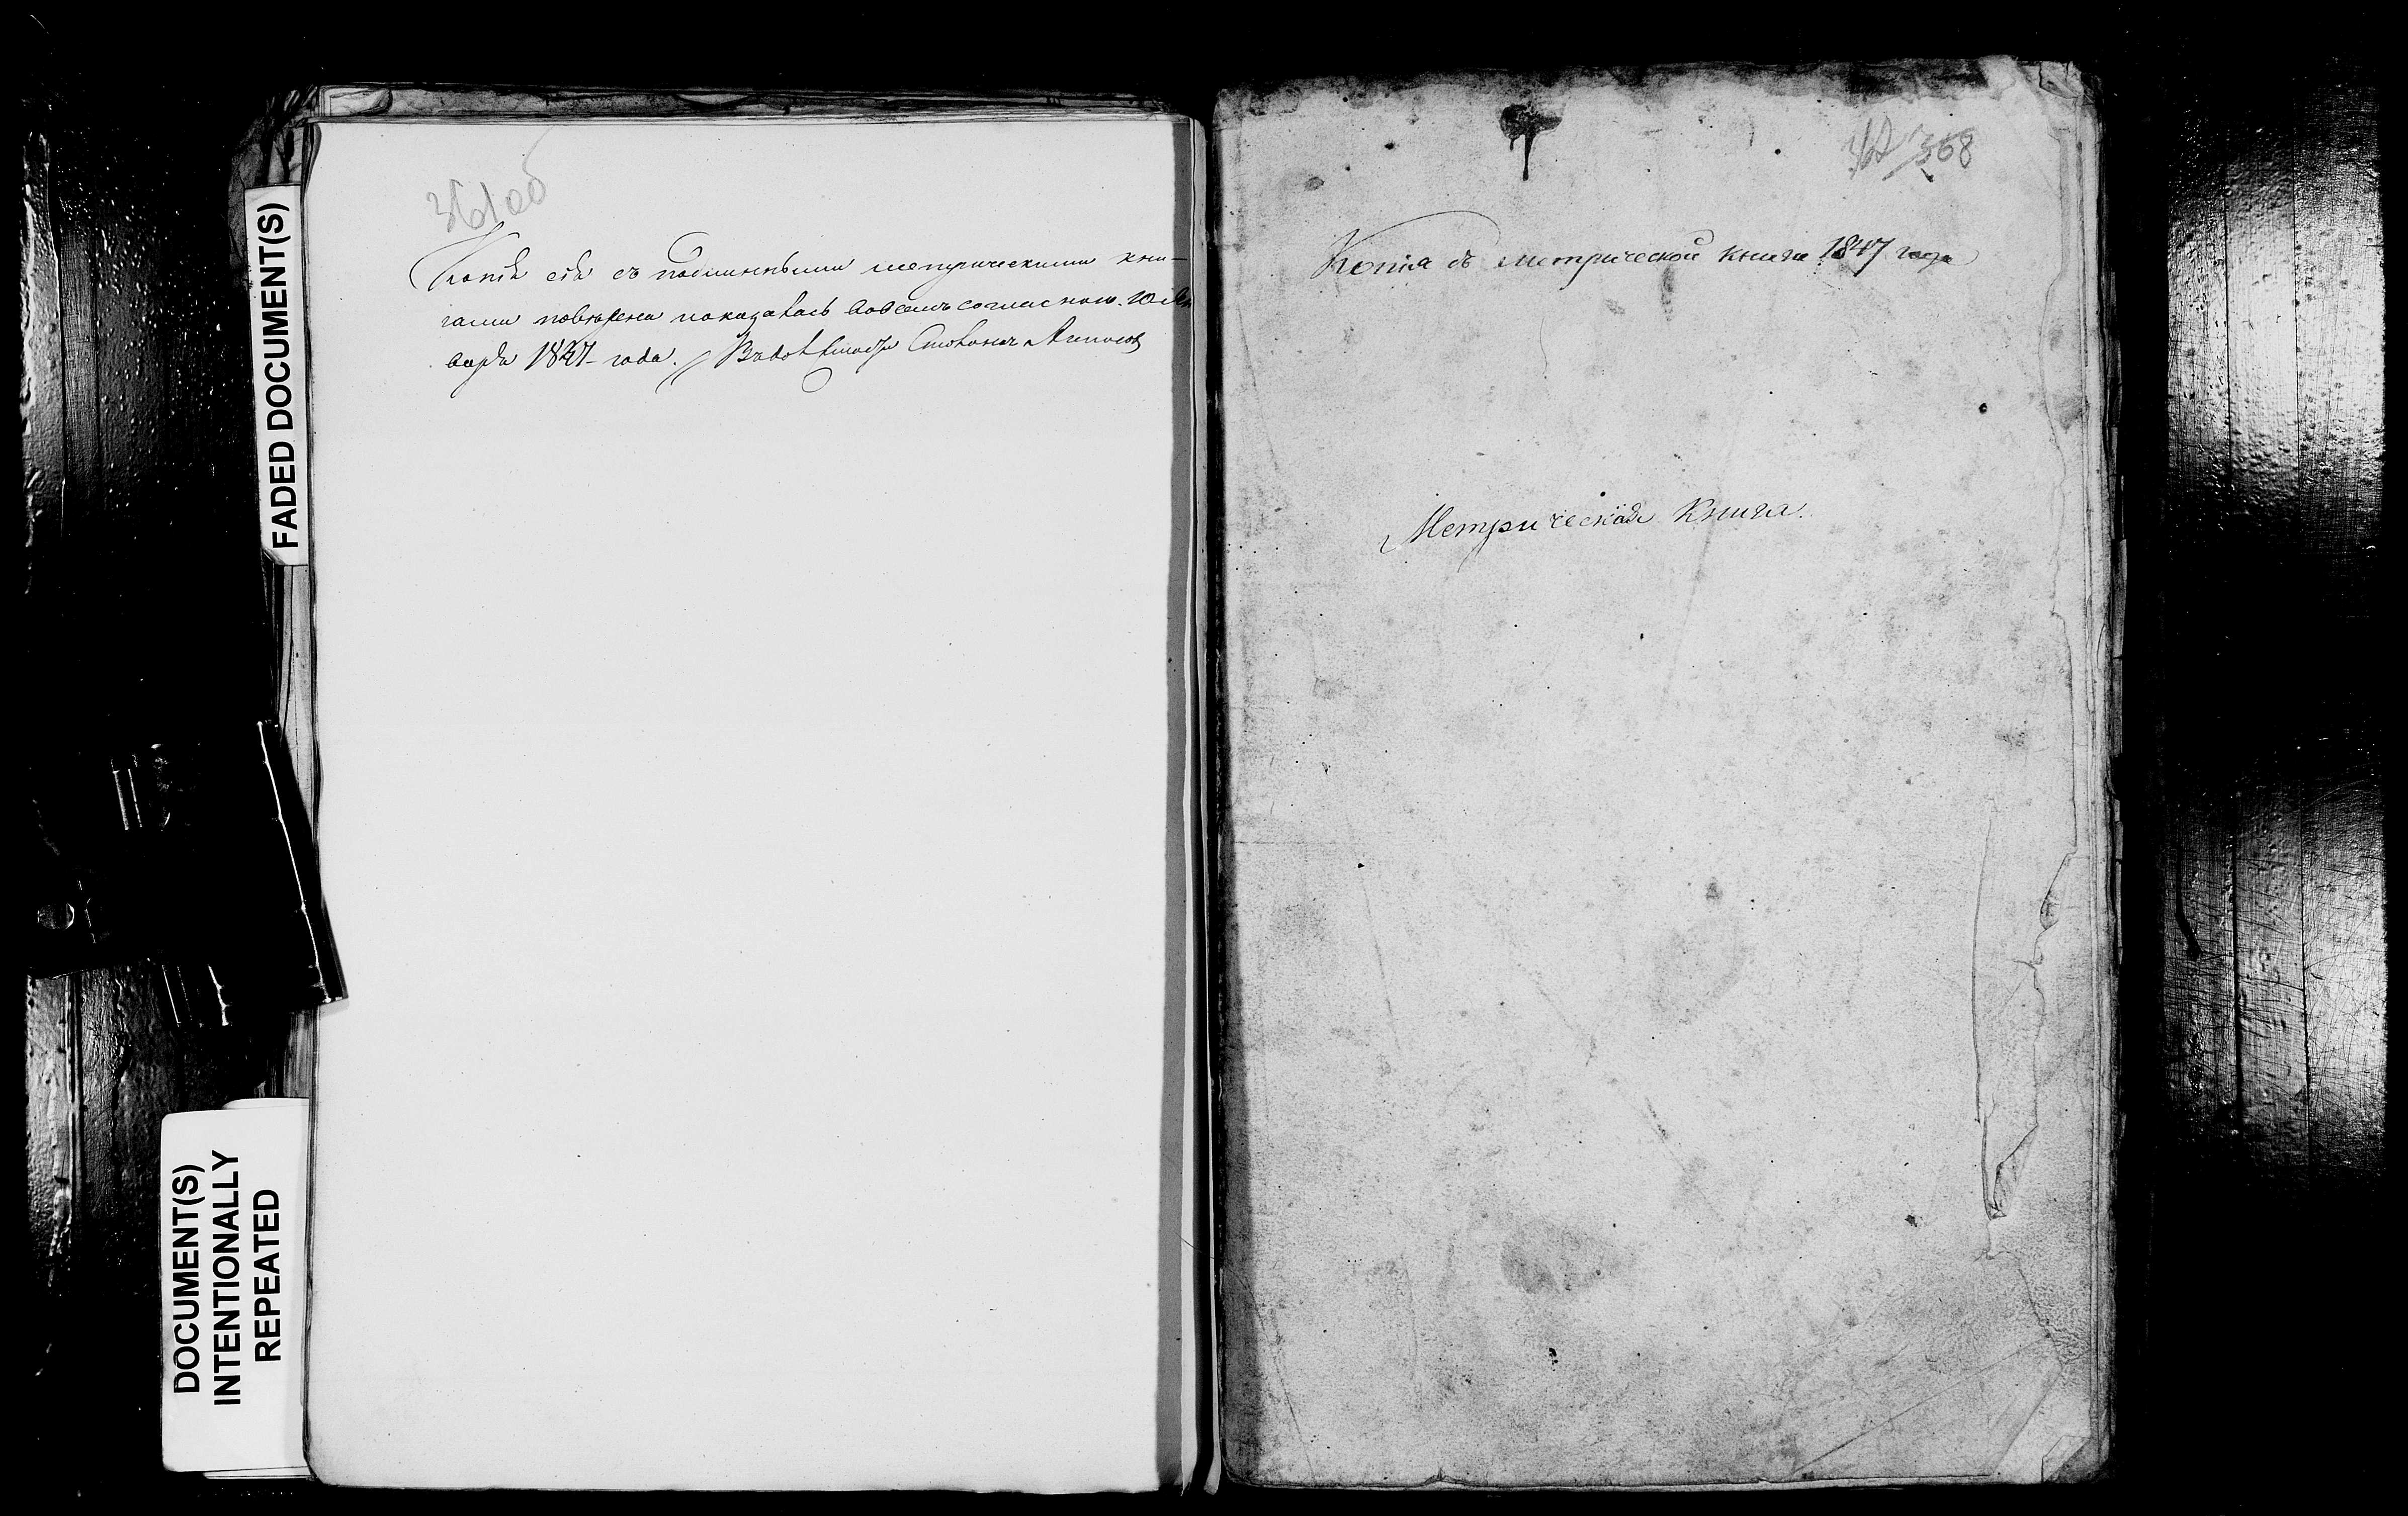 FADED DOCUMENT(S)
DOCUMENT(S)
INTENTIONALLY
REPEATED
361 об
Копія сія съ подлинными метрическими кни-
гами повѣрена и оказалась во всемъ согласною. 10 Ян
варя 1847 года.
368
Копія съ метрической книги 1847 года
Метрическая Книга.